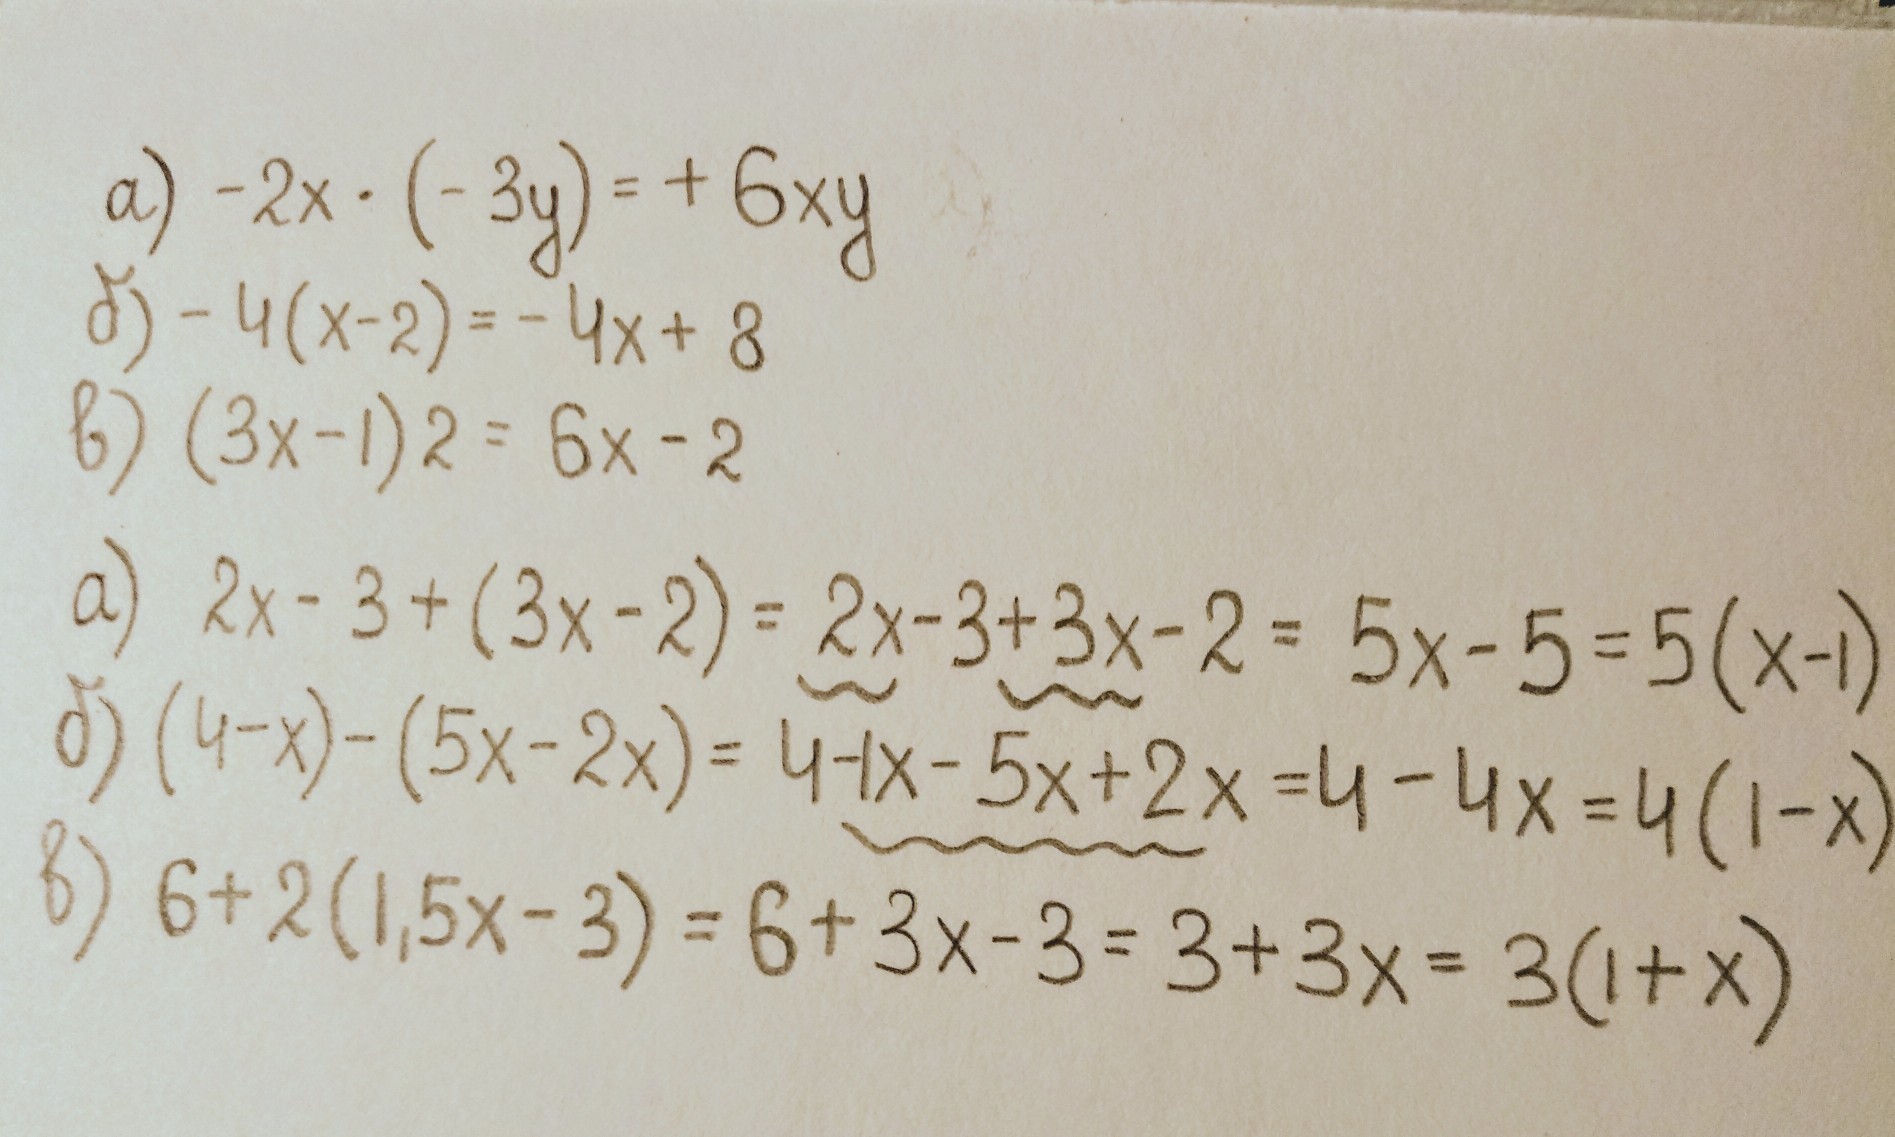 а) -2x · (- 3y) = + 6xy
б) - 4(x-2) = - 4x + 8
в) (3x-1)2 = 6x - 2
а) 2x - 3 + (3x - 2) = 2x-3+3x-2 = 5x-5 = 5(x-1)
б) (4-x) - (5x - 2x) = 4-1x - 5x+2x = 4 - 4x = 4(1-x)
в) 6+2(1,5x-3) = 6+3x-3 = 3+3x = 3(1+x)